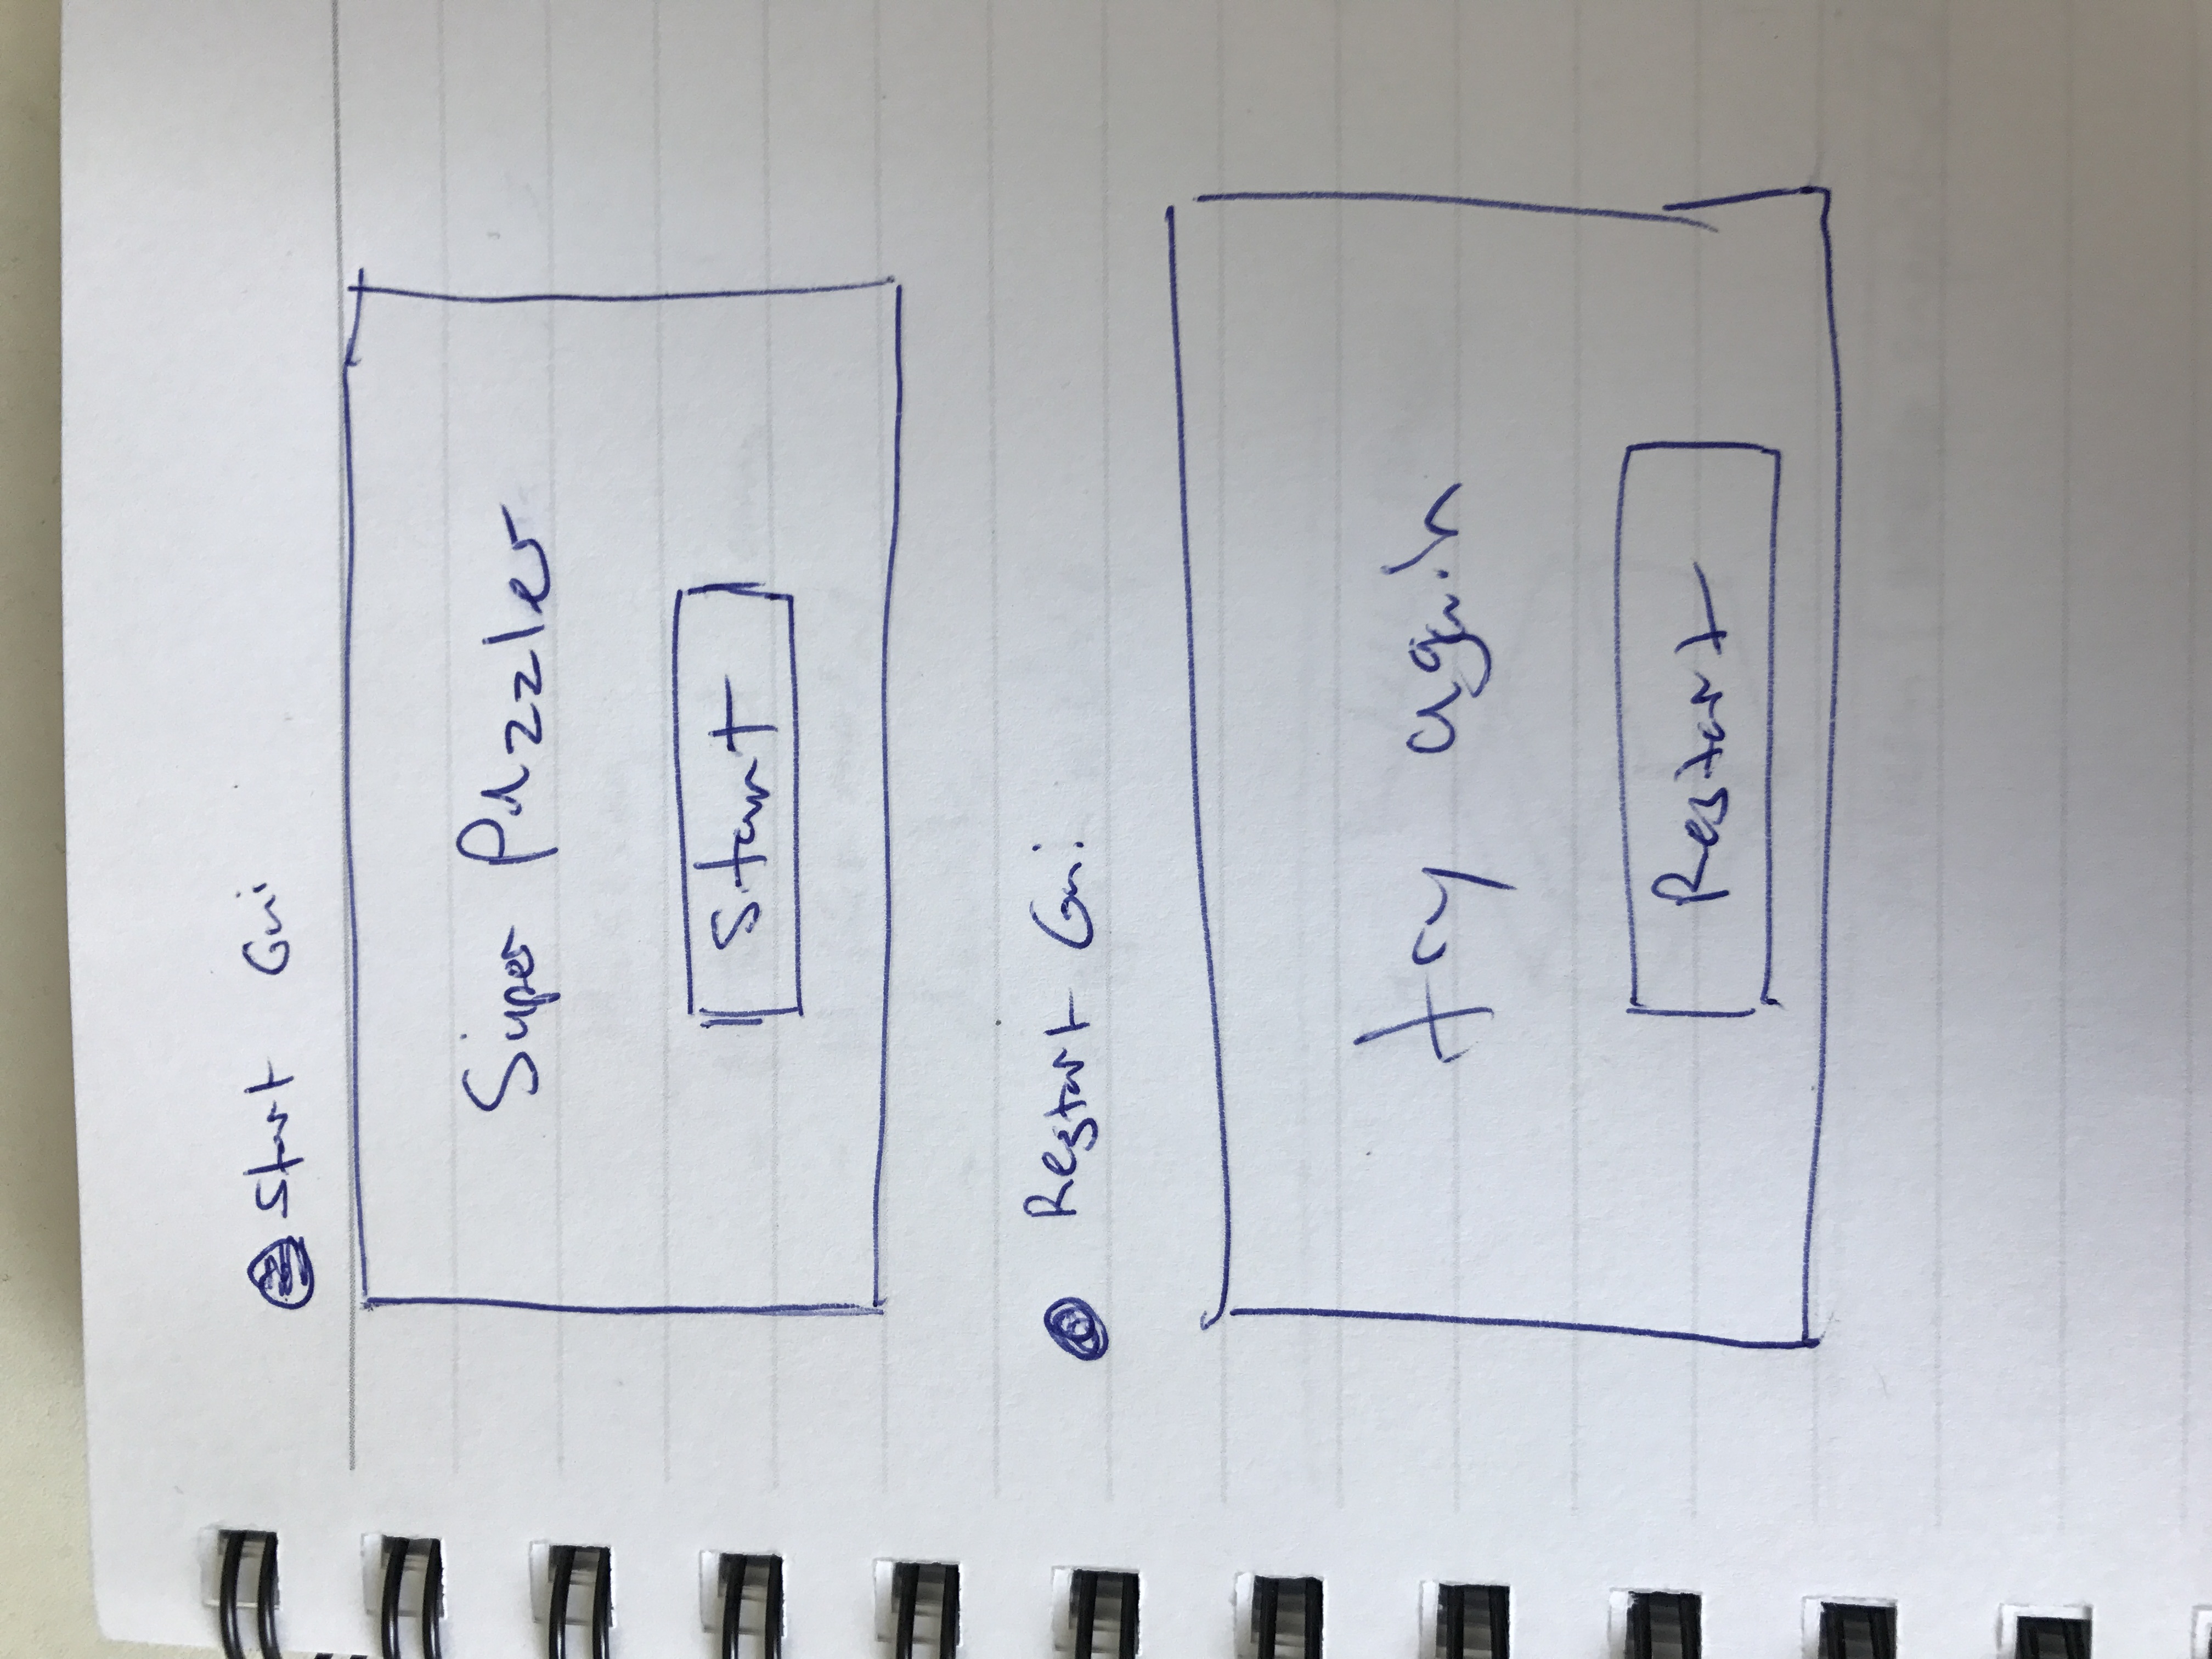 Start Gui
Super Puzzler
Start
Restart Gui
try again
Restart